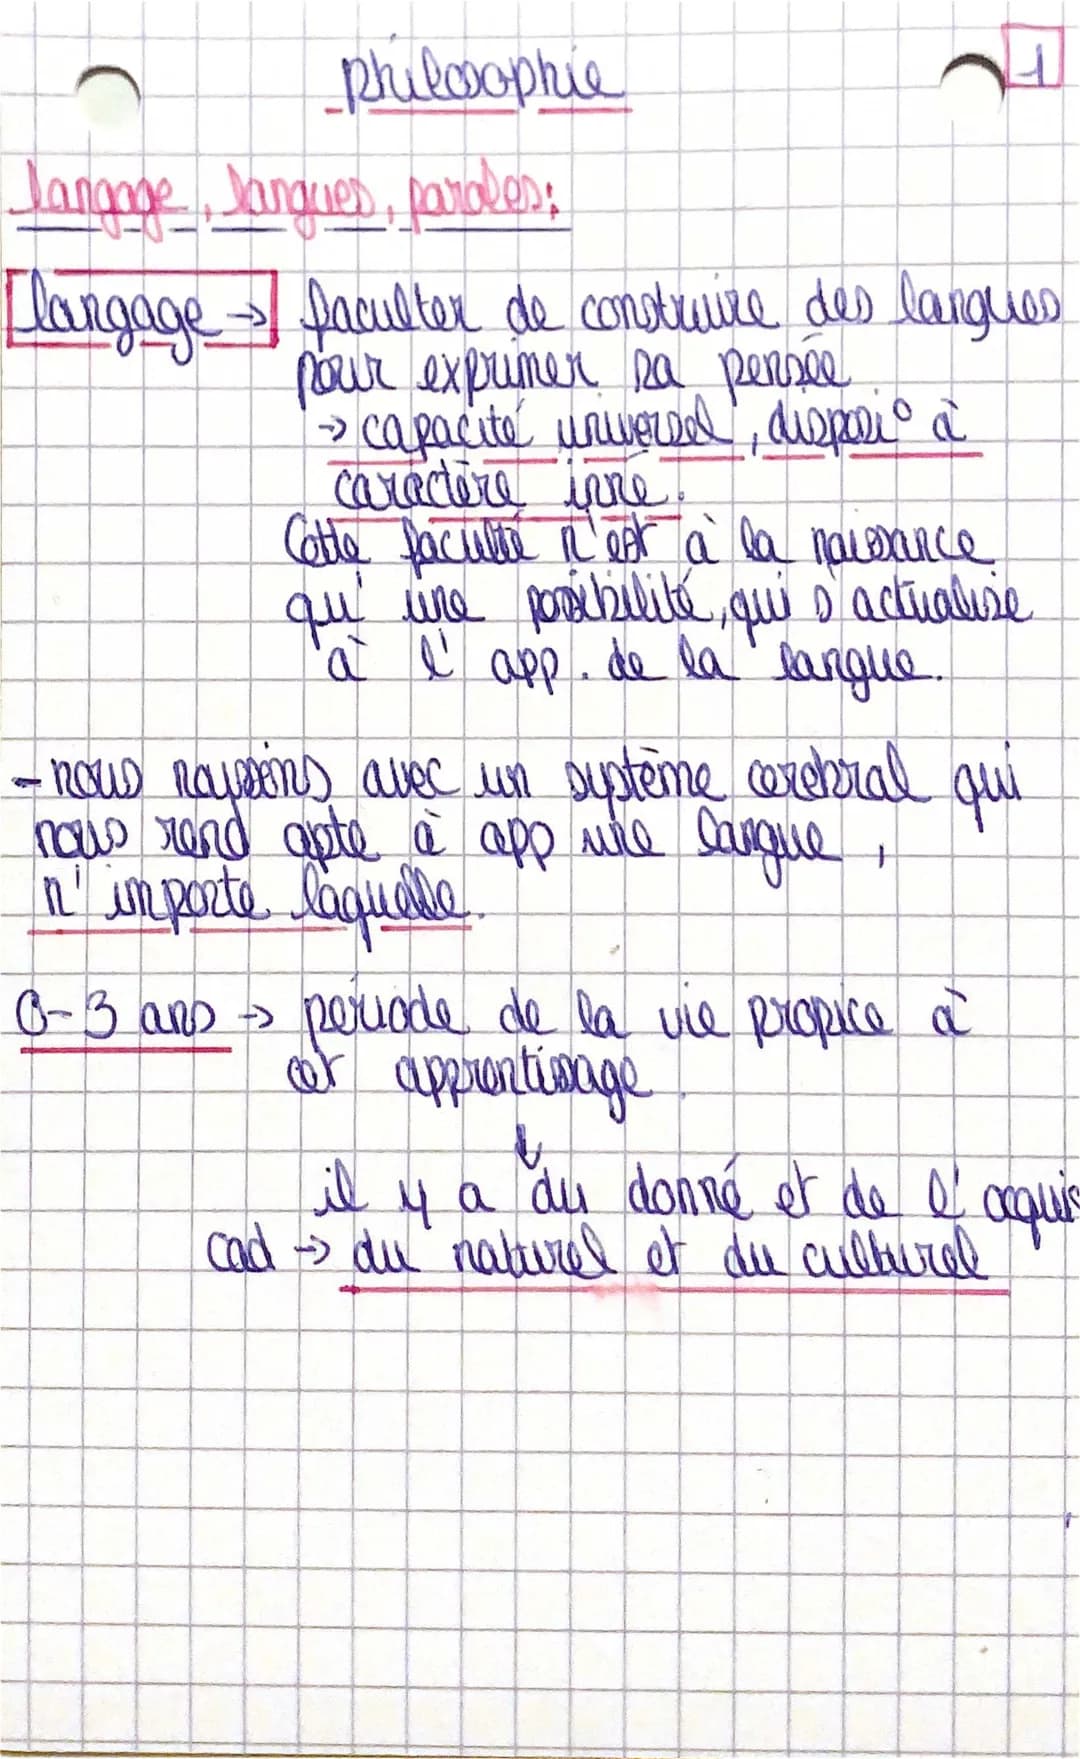 philosophie
1
langage, langues, paroles:
langage → faculter de construire des langues
pour exprimer sa pensée
→ capacité universel, disposi° à
caractère inné.
Cette faculté n'est à la naissance
qu'une possibilité, qui s'actualise
à l'app. de la langue.
- nous naissons avec un système cerebral qui
nous rend apte à app une langue,
n'importe laquelle.
0-3 ans → periode de la vie propice à
cet apprentissage.
↓
il y a du donné et de l'acquis
cad → du naturel et du culturel